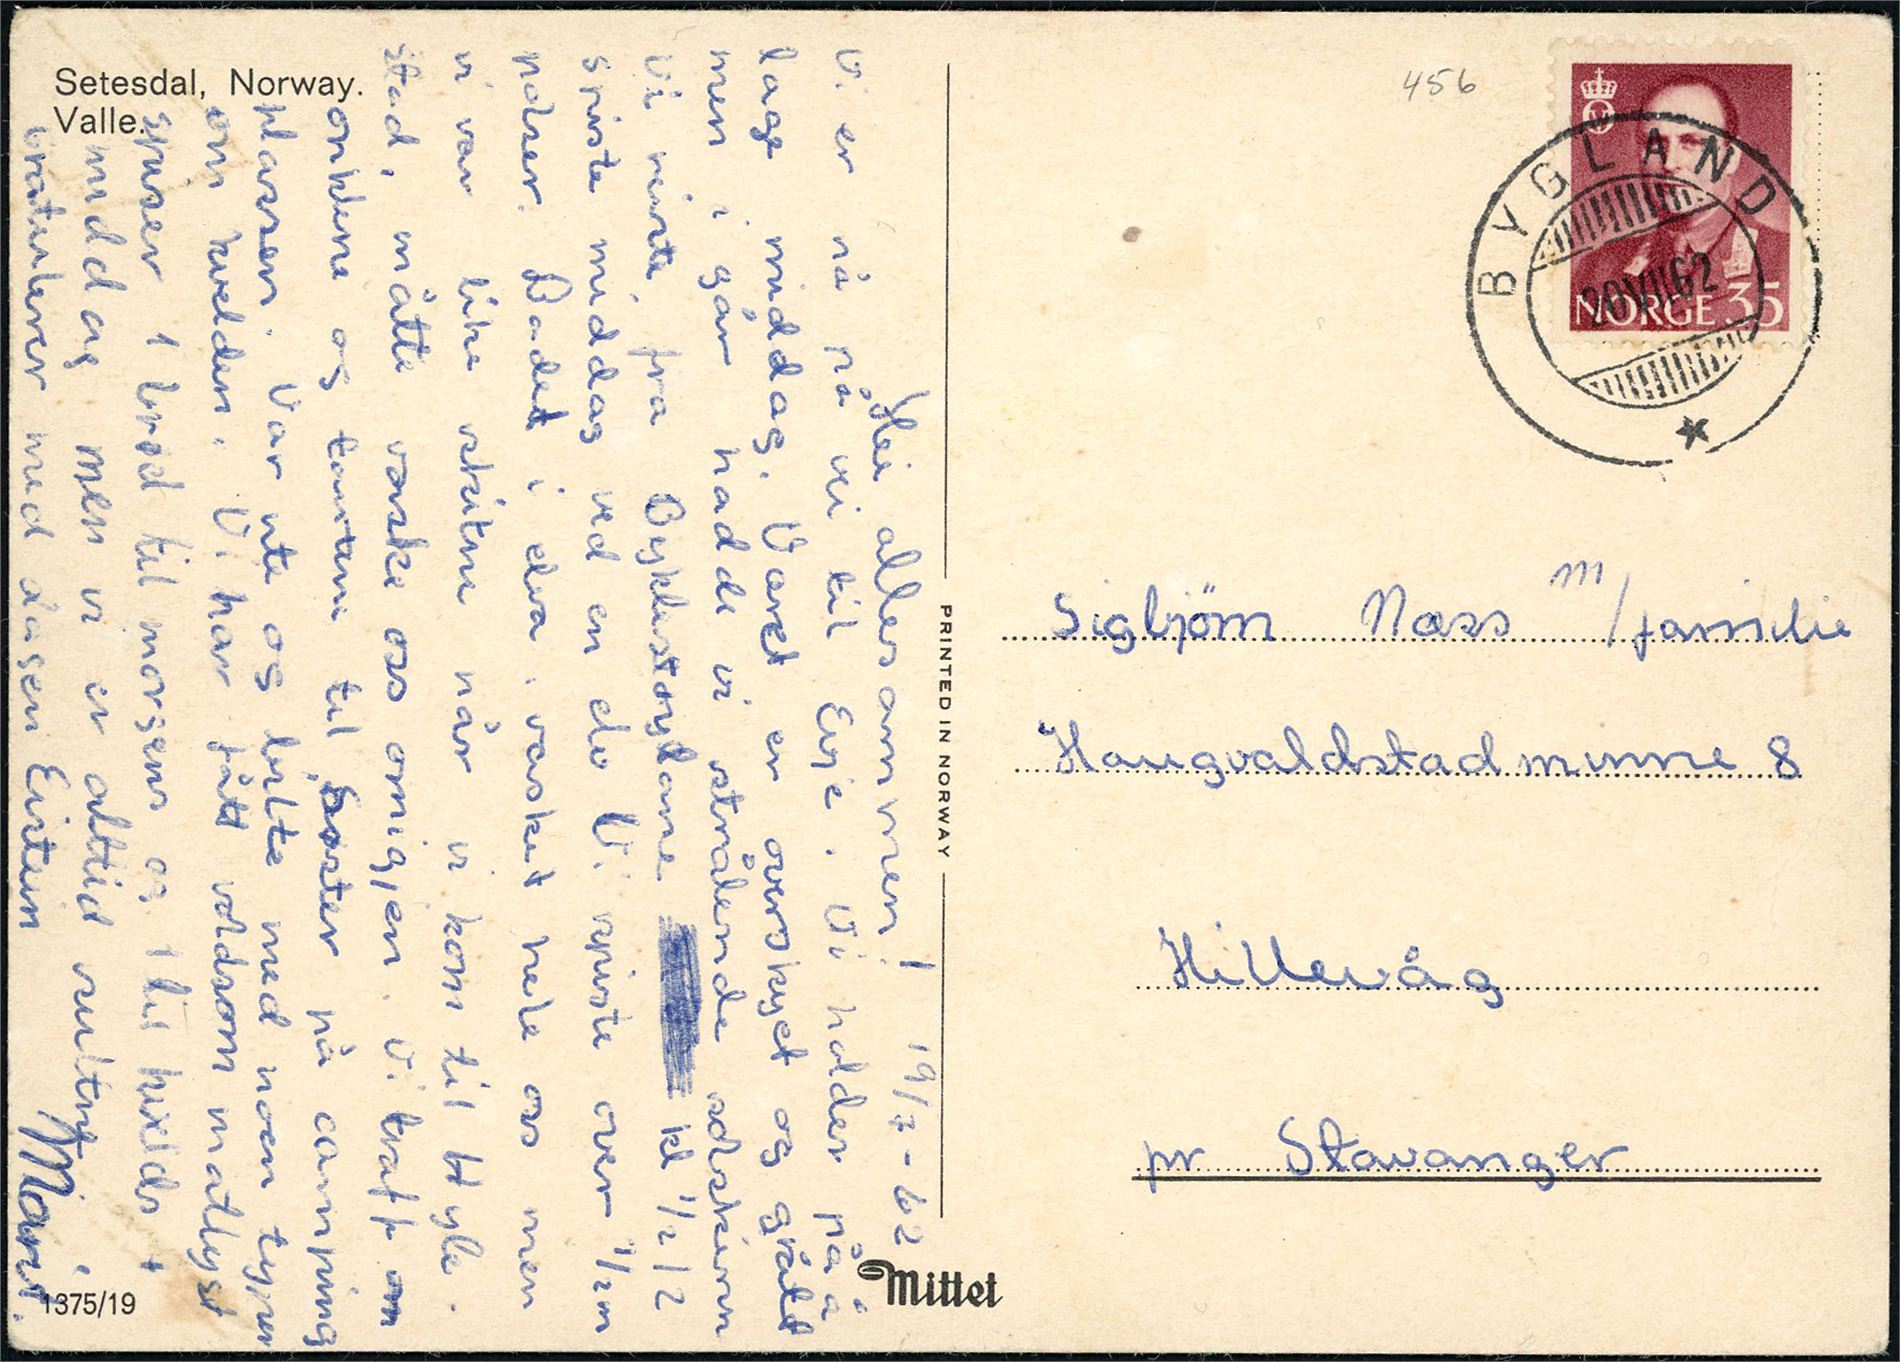 Setesdal, Norway.
Valle.
Hei allesammen! 19/7-62
Vi er nå på vei til Evje. Vi holder på å
lage middag. Været er overskyet og grått
men i går hadde vi strålende solskinn
Vi reiste fra Byklestøylane kl 1/2 12
spiste middag ved en elv Vi spiste over 1/2 m
pølser. Badet i elva, vasket hele oss men
vi var like skitne når vi kom til Hyle.
stad, måtte vaske oss omigjen. Vi traff
onklene og tantene til søster på camping
plassen. Var ute og lekte med noen typer
om kvelden. Vi har fått voldsom matlyst
spiser 1 brød til morgens og 1 til kvelds +
middag men vi er altid sultne.
Gratulerer med dagen Eistein Marit.
1375/19
PRINTED IN NORWAY
Mittet
456
NORGE 35
BYGLAND
20 VII 62
Sigbjörn Næss m/familie
Haugvaldstadminne 8
Hillevåg
pr Stavanger